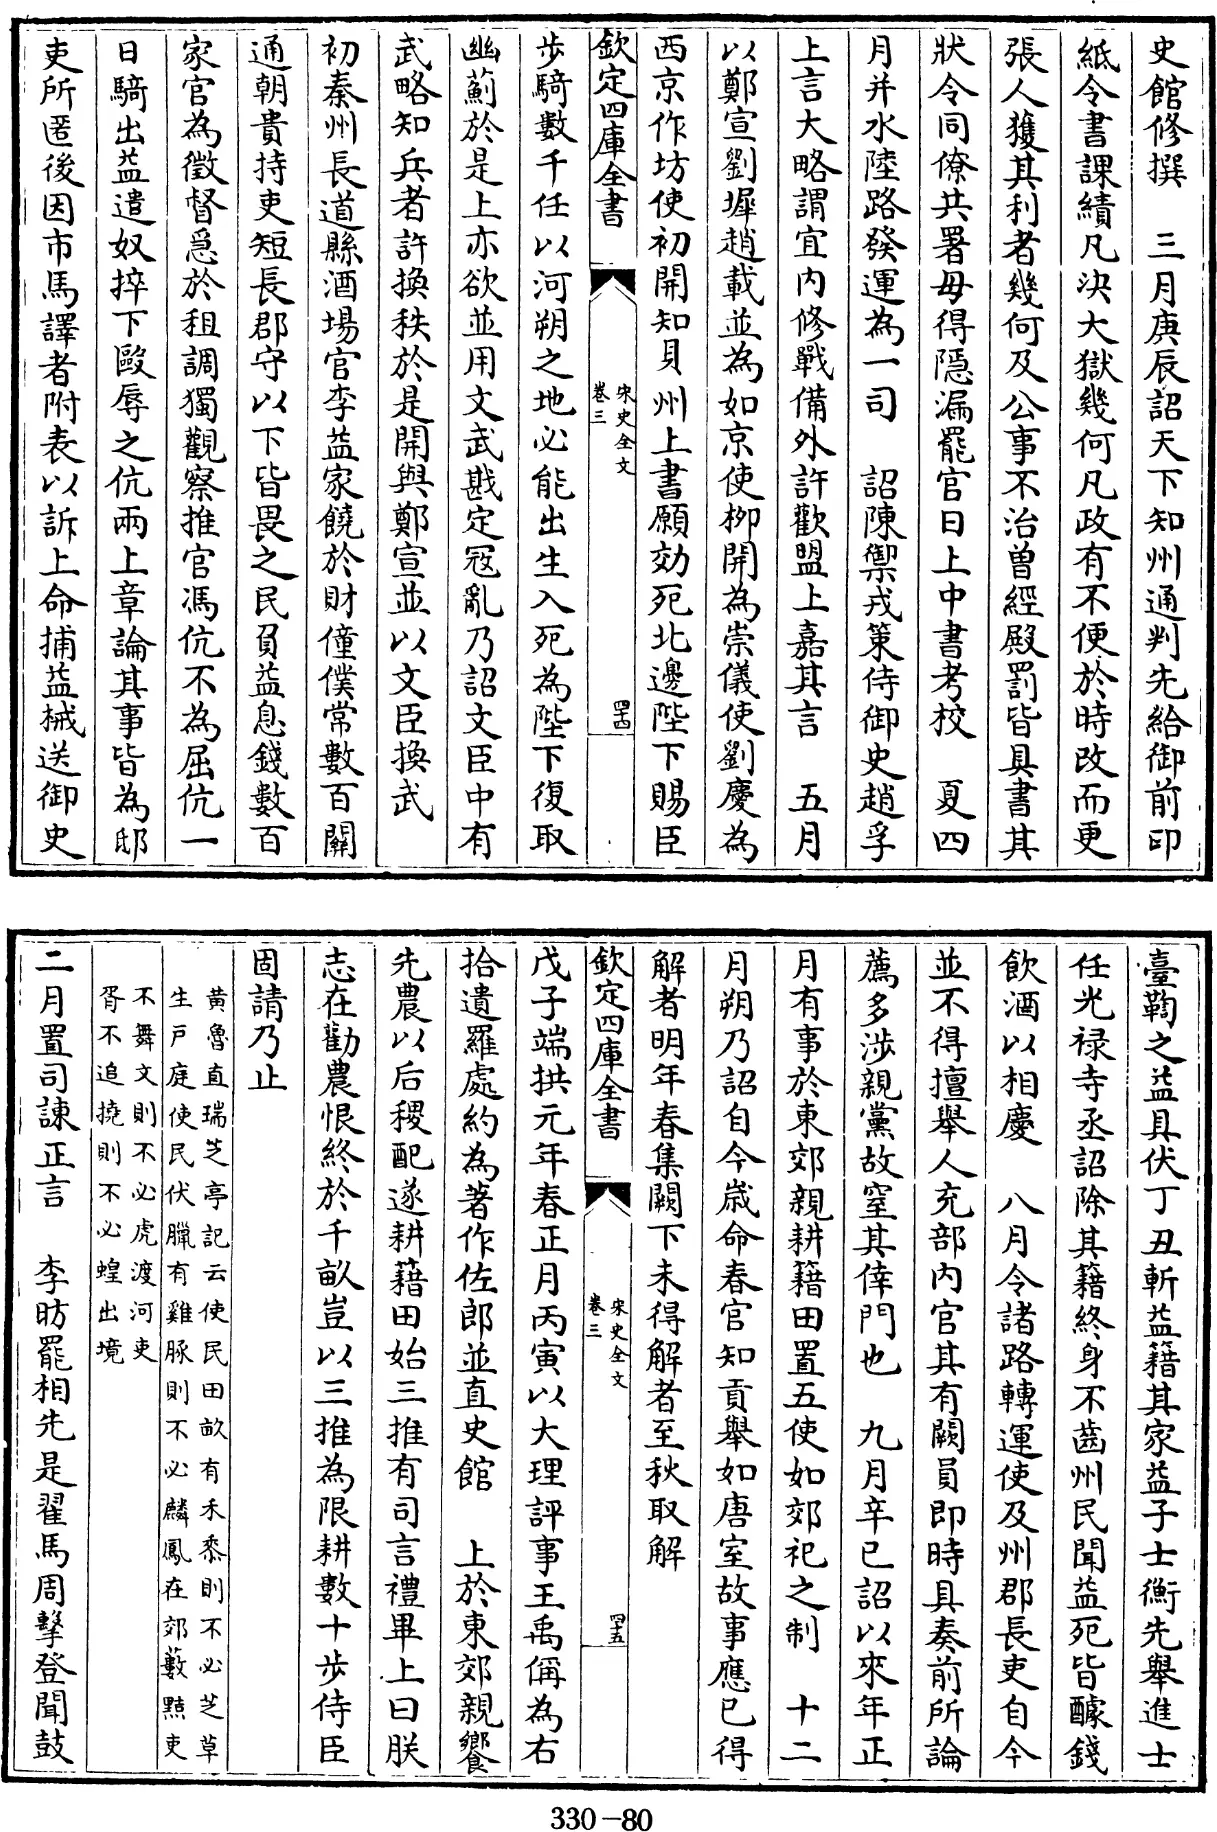 史館修撰　三月庚辰詔天下知州通判先給御前印
紙令書課績凡決大獄幾何凡政有不便於時改而更
張人獲其利者幾何及公事不治曽經殿罰皆具書其
狀令同僚共署毋得隱漏罷官日上中書考校　夏四
月并水陸路發運為一司　詔陳禦戎策侍御史趙孚
上言大略謂宜内修戰備外許歡盟上嘉其言　五月
以鄭宣劉墀趙載並為如京使栁開為崇儀使劉慶為
西京作坊使初開知貝州上書願効死北邊陛下賜臣
欽定四庫全書
宋史全文
卷三
四十四
步騎數千任以河朔之地必能出生入死為陛下復取
幽薊於是上亦欲並用文武戡定冦亂乃詔文臣中有
武略知兵者許換秩於是開與鄭宣並以文臣換武
初秦州長道縣酒場官李益家饒於財僮僕常數百關
通朝貴持吏短長郡守以下皆畏之民負益息錢數百
家官為徵督急於租調獨觀察推官馮伉不為屈伉一
日騎出益遣奴捽下毆辱之伉兩上章論其事皆為邸
吏所匿後因市馬譯者附表以訴上命捕益械送御史
臺鞫之益具伏丁丑斬益籍其家益子士衡先舉進士
任光禄寺丞詔除其籍終身不齒州民聞益死皆醵錢
飲酒以相慶　八月令諸路轉運使及州郡長吏自今
並不得擅舉人充部内官其有闕員即時具奏前所論
薦多涉親黨故窒其倖門也　九月辛巳詔以來年正
月有事於東郊親耕籍田置五使如郊祀之制　十二
月朔乃詔自今歲命春官知貢舉如唐室故事應已得
解者明年春集闕下未得解者至秋取解
欽定四庫全書
宋史全文
卷三
四十五
戊子端拱元年春正月丙寅以大理評事王禹偁為右
拾遺羅處約為著作佐郎並直史館　上於東郊親饗
先農以后稷配遂耕藉田始三推有司言禮畢上曰朕
志在勸農恨終於千畝豈以三推為限耕數十步侍臣
固請乃止
黄魯直瑞芝亭記云使民田畝有禾黍則不必芝草
生戸庭使民伏臘有雞豚則不必麟鳳在郊藪黠吏
不舞文則不必虎渡河吏
胥不追撓則不必蝗出境
二月置司諫正言　李昉罷相先是翟馬周擊登聞鼓
330-80